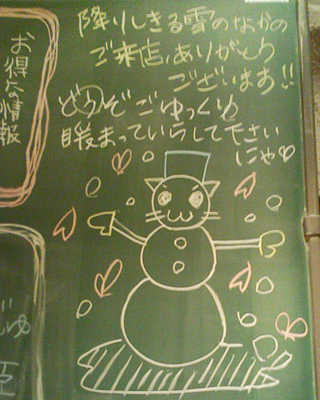 降りしきる雪のなかの
ご来店、ありがとう
ございます!!
どうぞごゆっくり
暖まっていらして下さい
にゃ♡
お得な情報